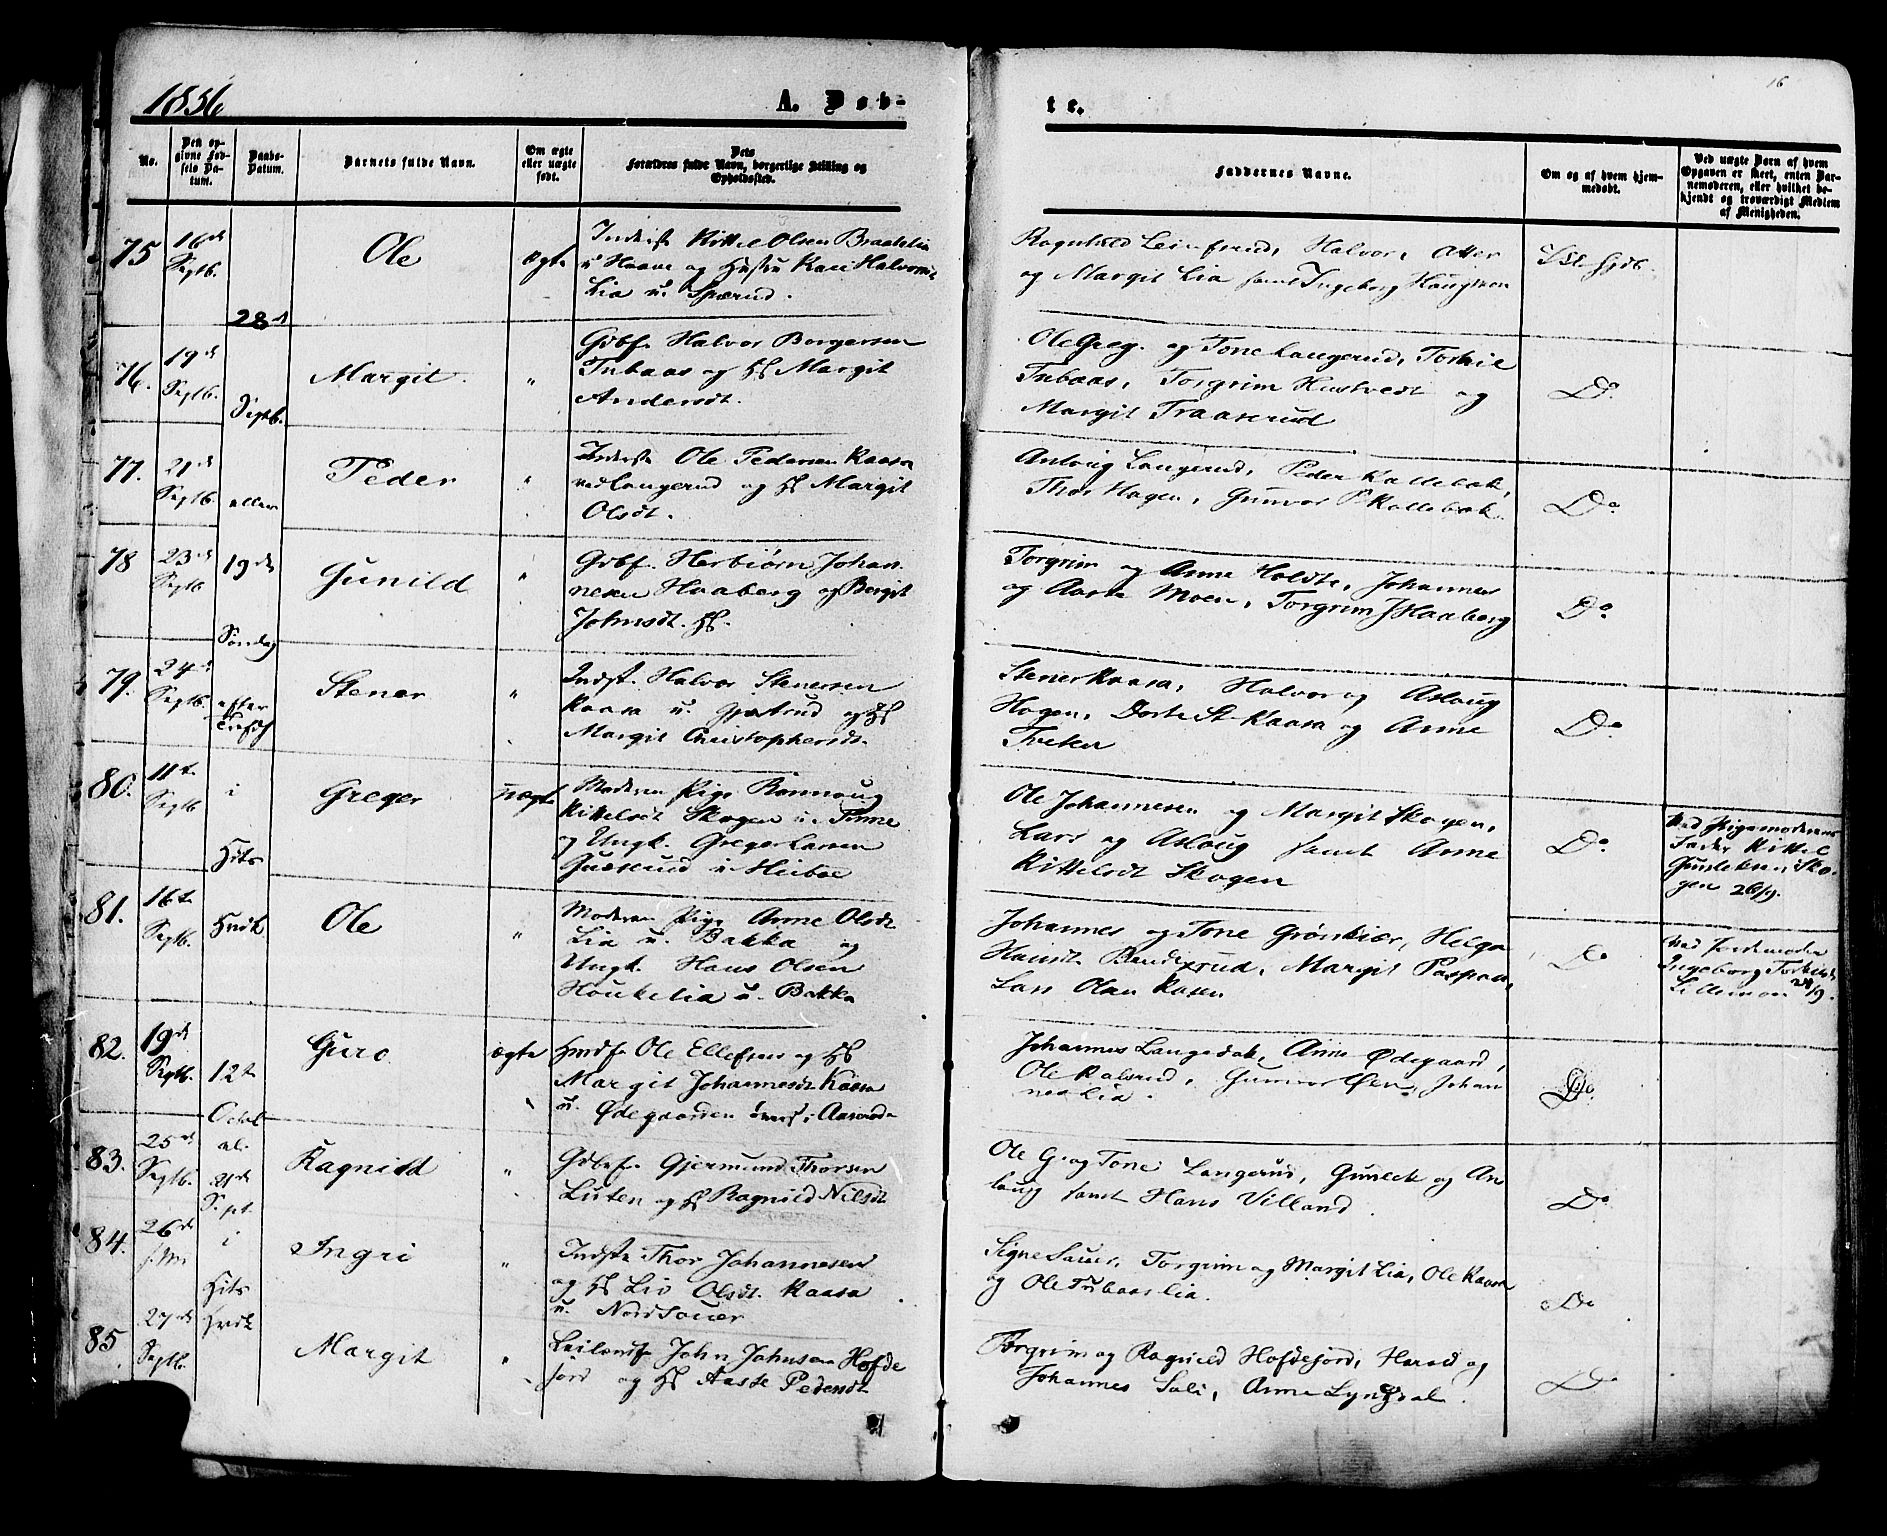 1856
A. Døb-
te.
16
No.
Den op-
givne Fød-
sels Da-
tum.
Daabs-
Datum.
Barnets fulde Navn.
Om ægte
eller uægte
født.
Dets
Forældres fulde Navn, borgerlige Stilling og
Opholdssted.
Faddernes Navne.
Om og af hvem hjem-
medøbt.
Ved uægte Børn af hvem
Opgaven er skeet, enten Bar-
nemoderen, eller hvilket be-
kjendt og troværdigt Medlem
af Menigheden.
75
16de
Septb.
Ole
ægte
Inderst Kittel Olsen Braakelia
u Haave og Hustru Kari Halvorsdt
Lia u. Spærud.
Ragnhild Leinesrud, Halvor,
og Margit Lia samt Ingeborg Haugmoen
28de
Septb.
eller
19de
Søndag
efter
i
Hits
Hvdk.
76.
19de
Septb.
Margit
"
Gdbf. Halvor Borgersen
Tubaas og HH Margit
Andersdt.
Ole Greg. og Tone Langerud, Torkil
Tubaas, Torgrim Hustvedt og
Margit Traaserud
Do.
77.
21de
Septb.
Peder
"
Inderste Ole Pedersen Kaasa
ved Langerud og HH Margit
Olsdt.
Aslaug Langerud, Peder Kallebæk,
Thor Hagen, Gunvor P Kallebæk.
Do.
78
23de
Septb
Gunild
"
Gdbf. Herbiørn Johan
nesen Haaberg og Bergit
Johnsdt. HH.
Torgrim og Anne Holdte, Johannes
og Aaste Moen, Torgrim J Haaberg
Do.
79.
24de
Septb.
Stener
"
Indst. Halvor Stenersen
Kaasa u. Gjøstrud og HH
Margit Christophersdt.
Stener Kaasa, Halvor og Aslaug
Hagen, Dorte St. Kaasa og Anne
Tveten
Do.
80.
11te
Septb
Greger
uægte
Moderen Pige Rønnaug
Kittelsdt Skogen u. Tinne
og Ungk. Greger Larsen
Guserud u Heibøe
Ole Johannesen og Margit Skogen,
Lars og Aslaug samt Anne
Kittelsdt Skogen
Do.
Ved Pigemoderens
Fader Kittel
Gundeksen Sko-
gen 26/9.
81.
16te
Septb.
Ole
"
Moderen Pige Anne Olsdt
Lia u. Bakka og
Ungk. Hans Olsen
Houkelia u. Bakka
Johannes og Tone Grønkiær, Helga
Hansdt Banderud, Margit Paspaa,
Lars Olsen Kasen
Do
Ved Jordemoder
Ingeborg Torkilsdt
Lillemoen 28/9.
82.
19de
Septb.
12te
Octob
al.
21de
Sept.
i
Hits
Hvdk
Guro
ægte
Hmdf. Ole Ellefsen og HH
Margit Johannesdt Kaasa
u. Ødegaarden øvers i Aaserud
Johannes Langedok, Anne Ødegaard,
Ole Kalsrud, Gunvor Øen, Johan
nes Lia.
Do
83.
25de
Septb.
Ragnild
"
Gdbrf. Gjermund Thorsen
Listen og HH Ragnild Nilsdt
Ole G. og Tone Langerud, Guneck og As
laug samt Hans Villand.
Do
84.
26de
Ingri
"
Indste Thor Johannesen
og HH Liv Olsdt. Kaasa
u. Nordsouer
Signe Sauer, Torgrim og Margit Lia, Ole Kaasa
og Ole Tubaaslia.
Do
85
27de
Septb.
Margit
"
Leilændf John Johnsen Hofde
jord og HH Aaste Pedersdt
Torgrim og Ragnild Hofdejord, Harald og
Johannes Sali, Anne Lyngdal.
Do